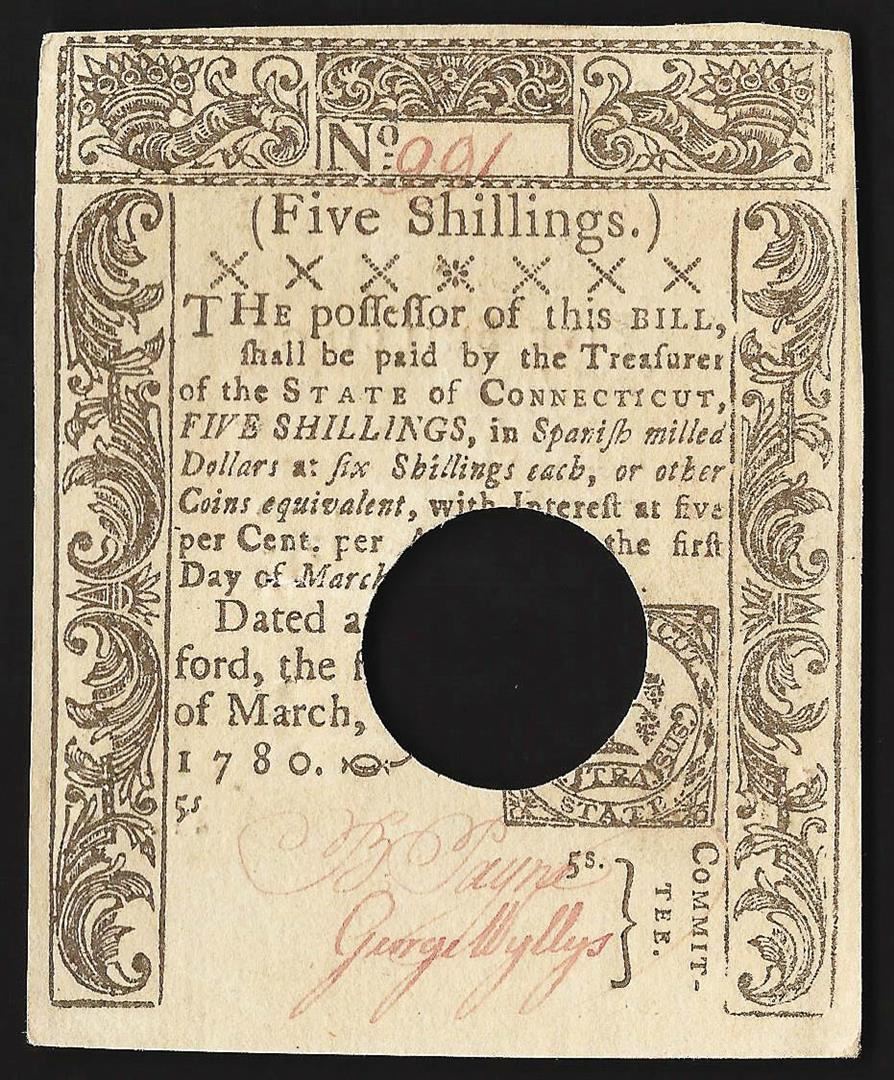 No. 991
(Five Shillings.)
THE poſſeſſor of this BILL,
ſhall be paid by the Treaſurer
of the STATE of CONNECTICUT,
FIVE SHILLINGS, in Spaniſh milled
Dollars at ſix Shillings each, or other
Coins equivalent, with Intereſt at five
per Cent. per the firſt
Day of March
Dated a
ford, the f
of March,
1780.
5s
CUT.
SUS
STRA
STATE
B. Payne
5s.
George Wyllys
COMMIT-
TEE.